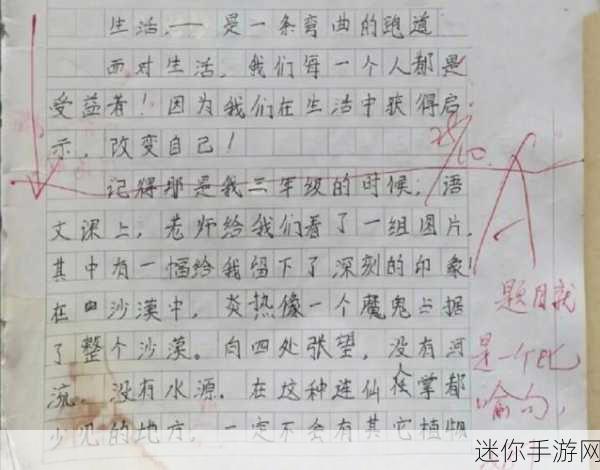 生活，——是一条弯曲的跑道
面对生活，我们每一个人都是
受益者！因为我们在生活中获得启
示，改变自己！
记得那是我三年级的时候，语
文课上，老师给我们看了一组图片，
其中有一幅给我留下了深刻的印象！
在沙漠中，炎热像一个魔鬼占据
了整个沙漠。向四处张望，没有河
流，没有水源，在这种连仙人掌都
少见的地方，一定不会有其它植物
A
题目就
是一个比
喻句，
迷你手游网